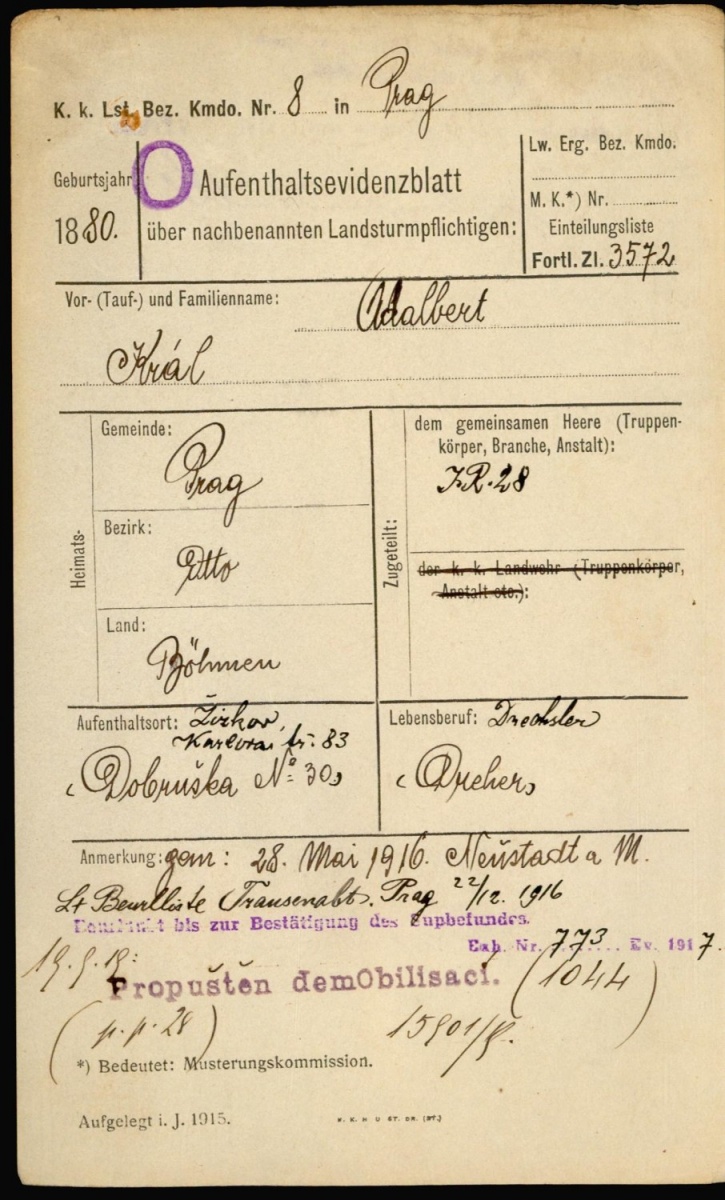 K. k. Lst. Bez. Kmdo. Nr. 8 in Prag
Geburtsjahr
1880.
O
Aufenthaltsevidenzblatt
über nachbenannten Landsturmpflichtigen:
Lw. Erg. Bez. Kmdo.
M. K.*) Nr.
Einteilungsliste
Fortl. Zl. 3572
Vor- (Tauf-) und Familienname: Adalbert
Král
Heimats-
Gemeinde:
Prag
Bezirk:
Dtto
Land:
Böhmen
Zugeteilt:
dem gemeinsamen Heere (Truppen-
körper, Branche, Anstalt):
I.R. 28
der k. k. Landwehr (Truppenkörper,
Anstalt etc.):
Aufenthaltsort: Žižkov,
Karlova tř: 83
(Dobruška No: 30)
Lebensberuf: Drechsler
(Dreher)
Anmerkung: gem: 28. Mai 1916. Neustadt a M.
Lt Beurlliste Transenabt. Prag 22/12. 1916
Beurlaubt bis zur Bestätigung des Supbefundes.
Exh. Nr. 773 Ev. 1917.
Propuštěn demObilisací. (1044)
(p. p. 28)
*) Bedeutet: Musterungskommission.
Aufgelegt i. J. 1915.